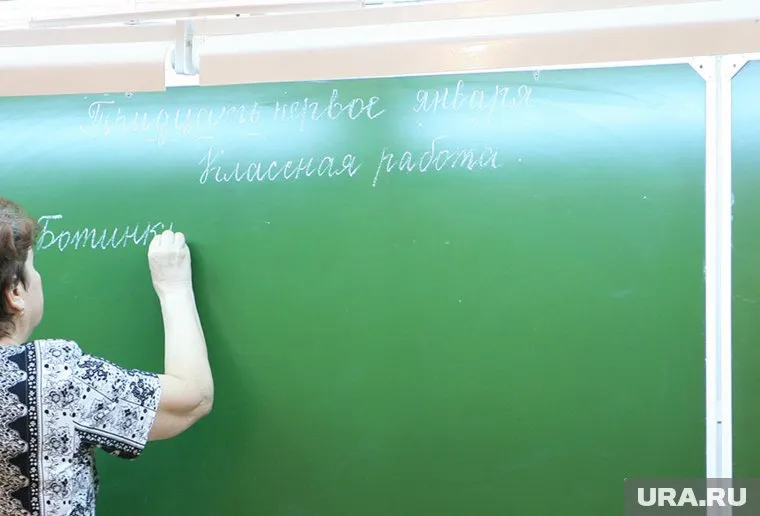 Тридцать первое января
Классная работа.
Ботинк
URA.RU